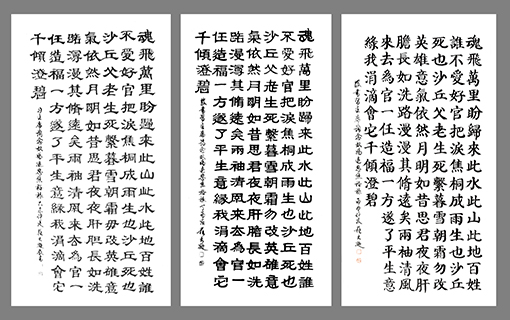 魂飛萬里盼歸來此水此山此地百姓誰
不愛好官把淚焦桐成雨生也沙丘死也
沙丘父老生死繫暮雪朝霜勿改英雄意
氣依然月明如昔思君夜夜肝膽長如洗
路漫漫其脩遠矣兩袖清風來去為官一
任造福一方遂了平生意綠我涓滴會它
千頃澄碧
魂飛萬里盼歸來此水此山此地百姓誰
不愛好官把淚焦桐成雨生也沙丘死也
沙丘父老生死繫暮雪朝霜勿改英雄意
氣依然月明如昔思君夜夜肝膽長如洗
路漫漫其脩遠矣兩袖清風來去為官一
任造福一方遂了平生意綠我涓滴會它
千頃澄碧
魂飛萬里盼歸來此水此山此地百姓
誰不愛好官把淚焦桐成雨生也沙丘
死也沙丘父老生死繫暮雪朝霜勿改
英雄意氣依然月明如昔思君夜夜肝
膽長如洗路漫漫其脩遠矣兩袖清風
來去為官一任造福一方遂了平生意
綠我涓滴會它千頃澄碧